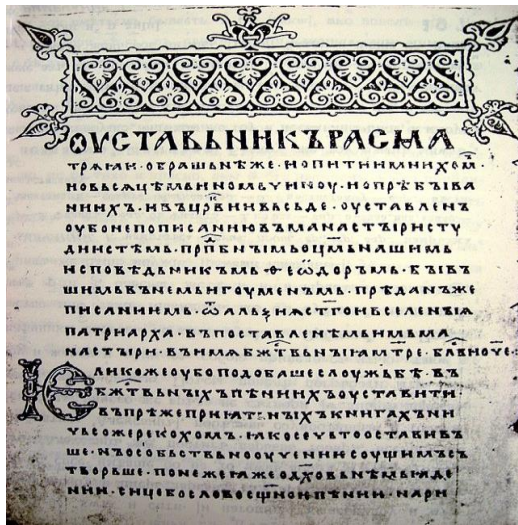 ОУСТАВЬНИКЪ РАСМА
ТРѦѨИ · ОБРАШЬ НѢЖЕ · Н О ПИТИИ МНИХОМ
НОВЬСѦЦѢМЬ ИНОМЬ УИНОУ · И О ПРѢБЪІВА
НИИХЪ · И ВЪ ЦРВИ И ВЬСЬДЕ · ОУСТАВЛЕНЪ
ОУБО НЕ ПО ПИСАНИЮ ВЪ МАНАСТЫРИ СТУ
ДИСТѢМЬ · ПРПБНЪІМЬ ОЦМЬ НАШИМЬ
ИСПОВѢДЬНИКЪМЬ · ѲЕѠДОРЪМЬ · БЪІВЪ
ШИМЬ ВЪ НЕМЬ ИГОУМЕНЪМЬ · ПРѢДАНЪ ЖЕ
ПИСАНИЕМЬ · ѾАЛЬѮИѨ СТГО И ВСЕЛЕНЪІѨ
ПАТРИАРХА · ВЪ ПОСТАВЛЕНѢМЬ ИМЬ МА
НАСТЫРИ · ВЪ ИМѦ БЖТВЬНЪІѨ МТРЕ · БЛВИ ОУЕ ·
ѤЛИКОЖЕ ОУБО ПОДОБАШЕ СЛОУЖЬБѢ · ВЪ
БЖТВЬНЪІХЪ ПѢНИИХЪ ОУСТАВИТИ ·
ВЪ ПРѢЖЕ ПРИѨТЪНЪІХЪ КНИГАХЪ НИ
УЬСОЖЕ РЕКОХОМЪ · ѨКО СЕ УЬТО ОСТАВИВЪ
ШЕ · ИЪ СОБЬСТВЬНО ОУУЕНИЕ ОУУИМЪ СЪ
ТВОРЬШЕ · ПОНЕЖЕ ѨЖЕ О ДХОВЬНѢМЬ ѨДЕ
НИИ · СИЦЕ БО СЛОВО СЩНОѤ ПѢНИИ · НАРИ